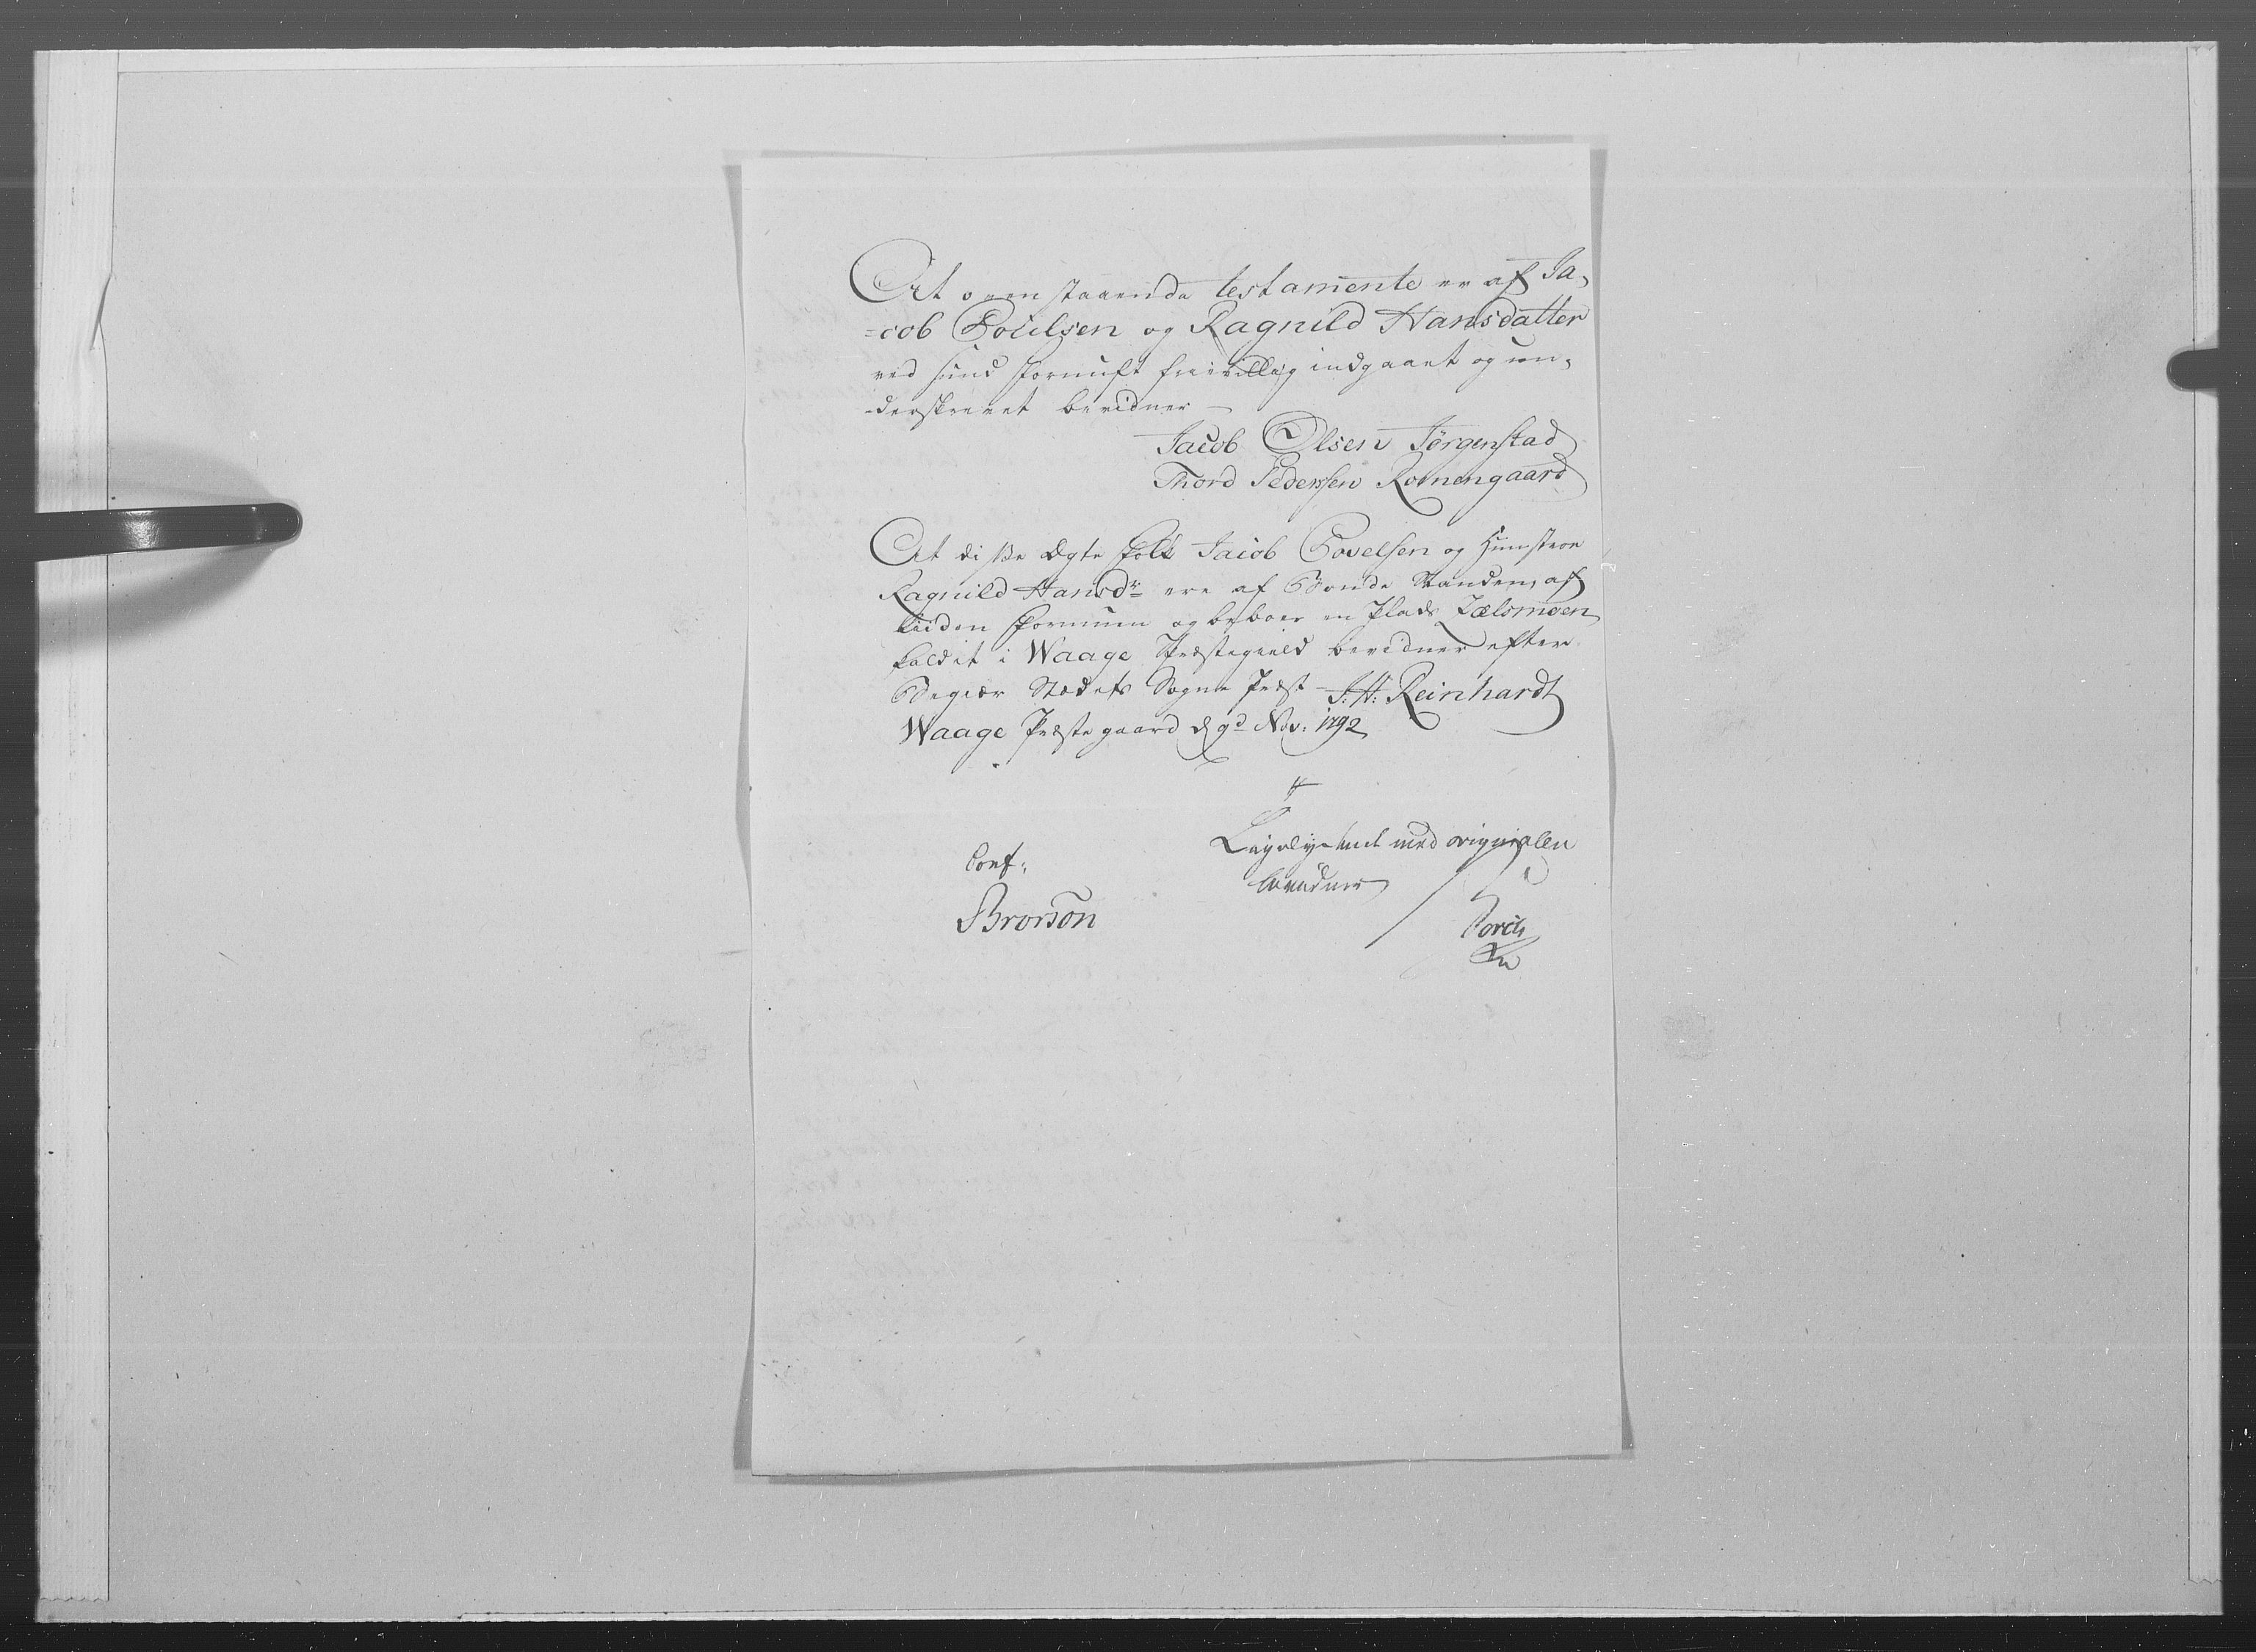 At ovenstaaende testamente er af Ja-
=cob Poulsen og Ragnild Hansdatter
ved sund Fornuft frivillig indgaaet og un-
-derskrevet bevidner
Jacob Olsen Jørgenstad
Thord Pedersen Romengaard
At disse Ægte Folk Jacob Povelsen og Hustroe
Ragnild Hansdr ere af Bonde Standen, af
liiden Formue og beboer en Plads Zælsmoen
kaldet i Waage Præstegield bevidner efter
Begiær Stædets Sogne Præst J: H: Reinhardt
Waage Præstegaard d 9d Nov: 1792
Ligelydende med originalen
Conf:
bevidner
Brorson